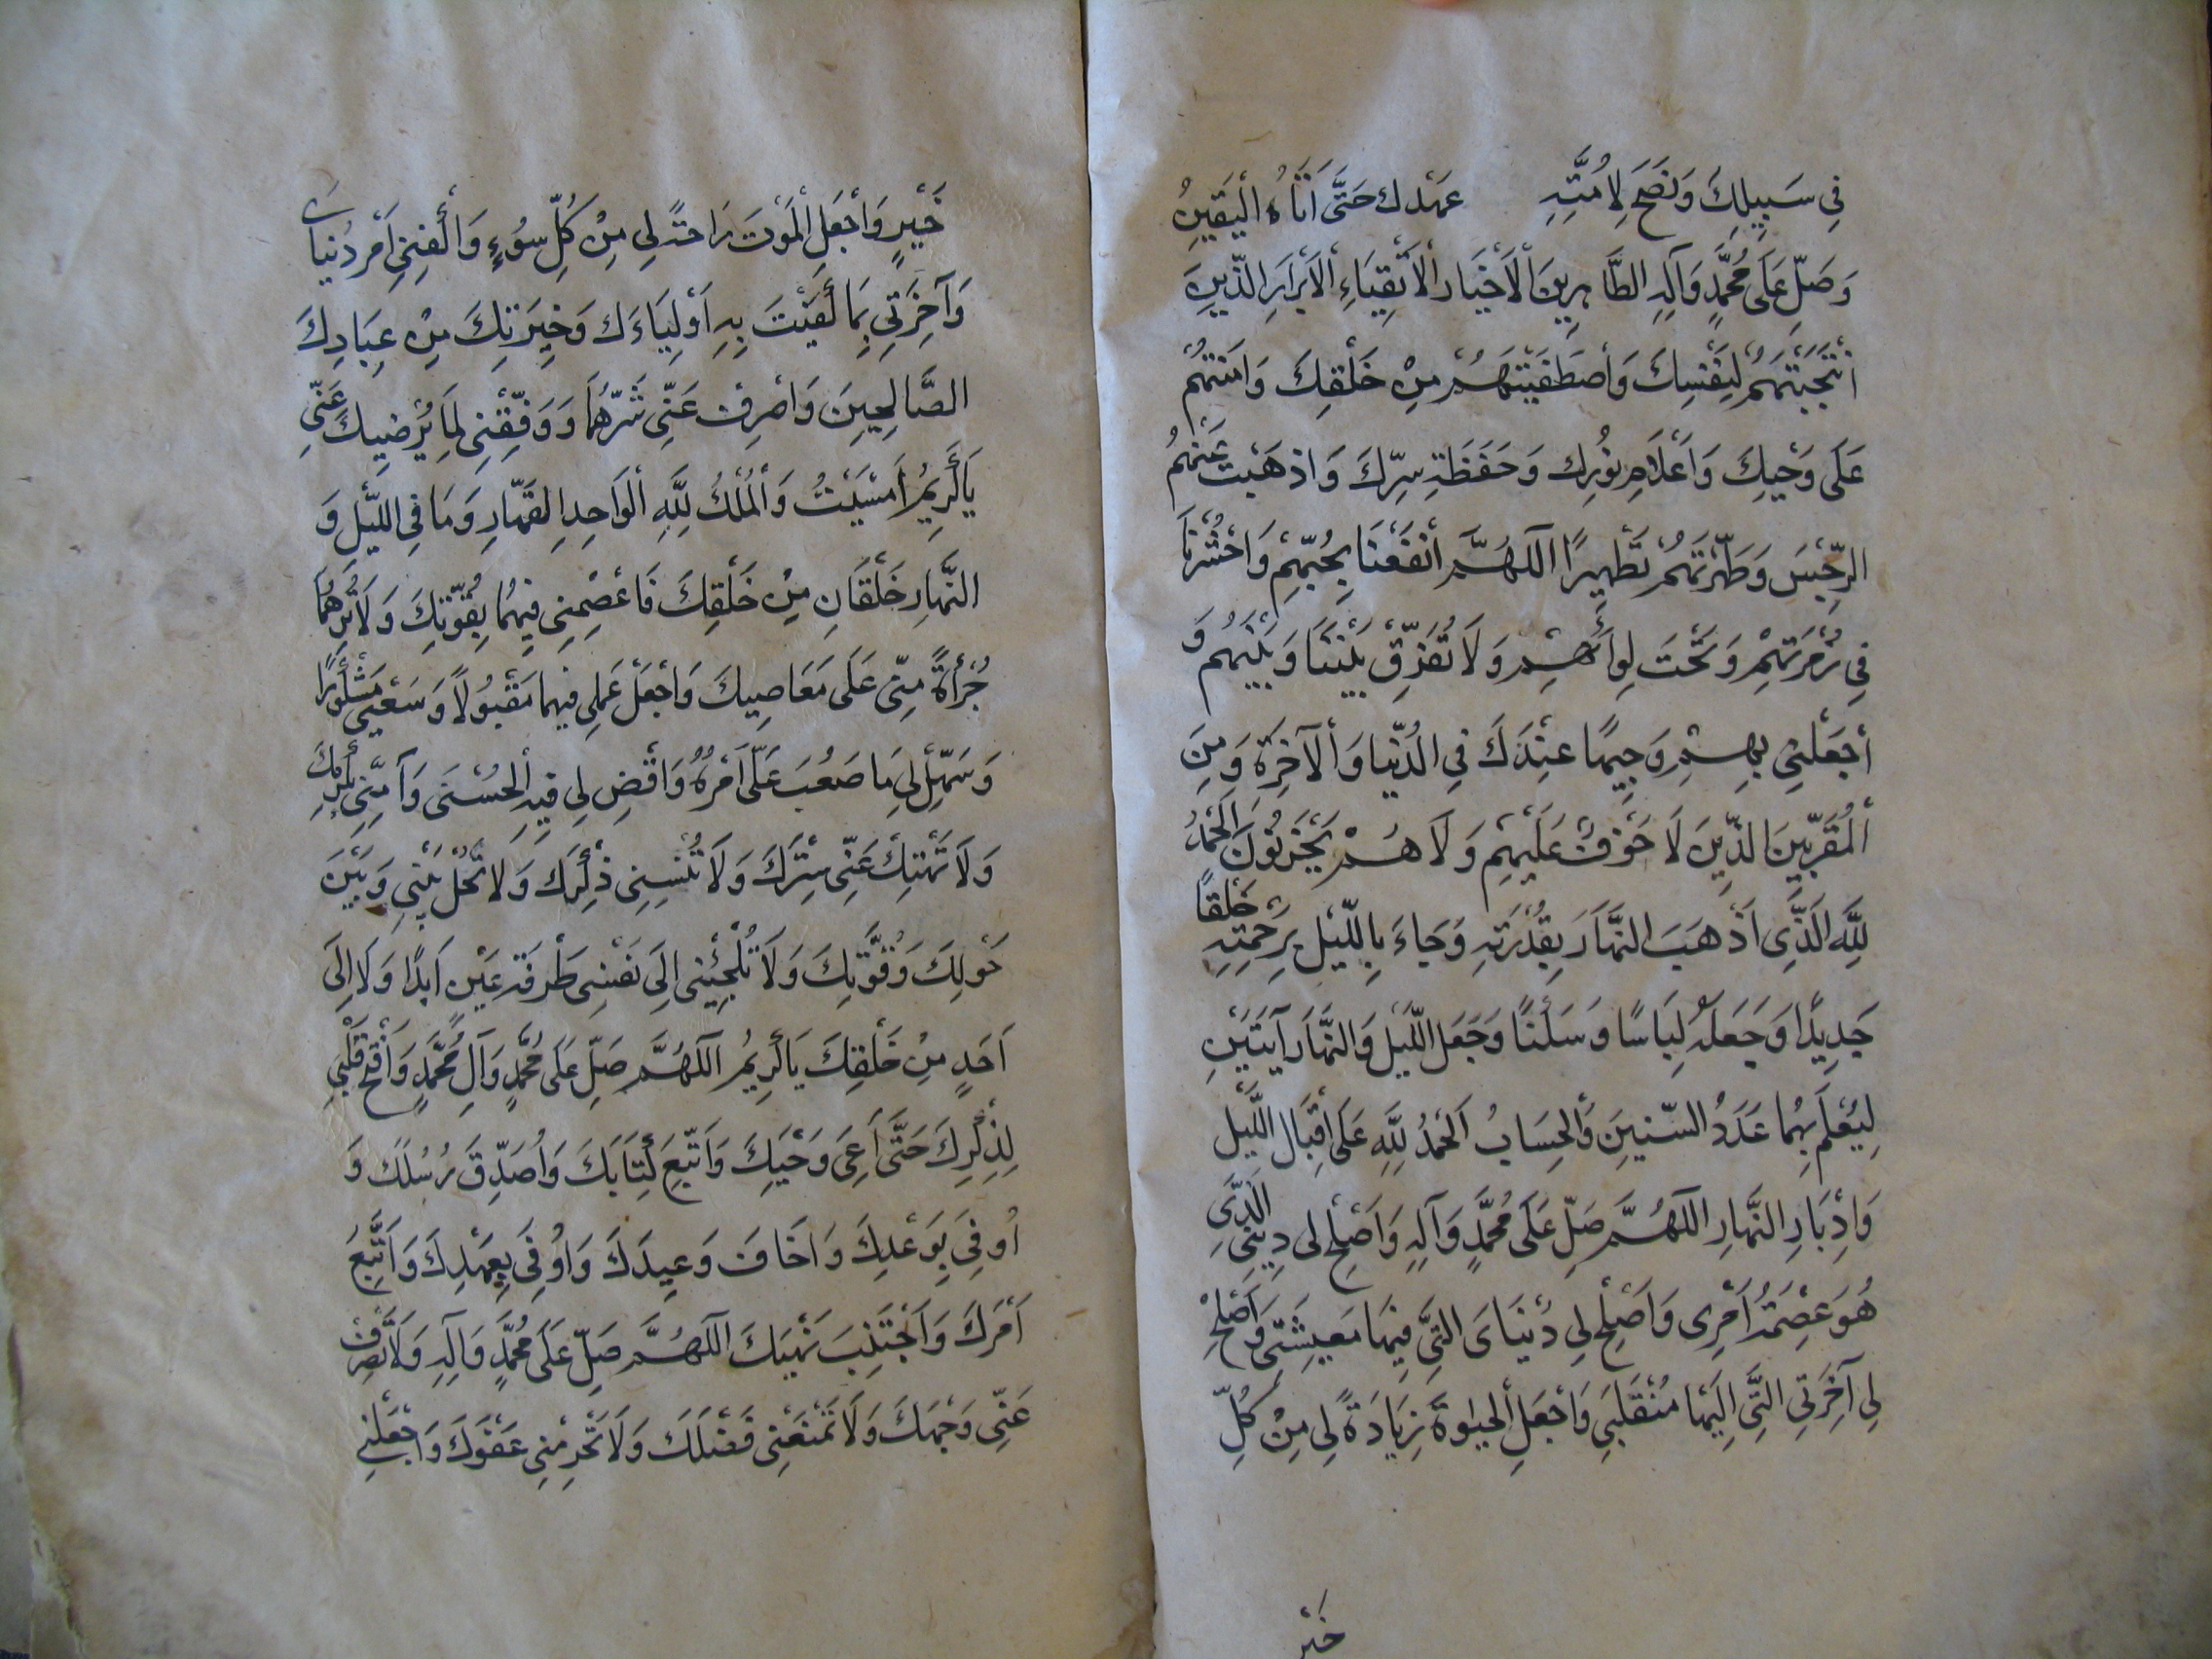 فِي سَبِيلِكَ وَنَصَحَ لِاُمَّتِهِ عَهْدك حَتَّى اَتَاهُ الْيَقِينُ
وَصَلِّ عَلَى مُحَمَّدٍ وَآلِهِ الطَّاهِرِينَ الْأَخْيَارِ الْأَتْقِيَاءِ الْأَبْرَارِ الَّذِينَ
انْتَجَبْتَهُمْ لِنَفْسِكَ وَاصْطَفَيْتَهُمْ مِنْ خَلْقِكَ وَامَنْتَهُمْ
عَلَى وَحْيِكَ وَاَعْلَامِ نُورِك وَحَفَظَةِ سِرِّكَ وَاذهَبْت عَنْهُمُ
الرِّجْسَ وَطَهَّرْتَهُمْ تَطْهِيرًا اللَهُمَّ انْفَعْنَا بِحُبِّهِمْ وَاحْشُرْنَا
فِي زُمْرَتِهِمْ وَتَحْتَ لِوَائِهِمْ وَلَا تُفَرِّقْ بَيْنَنَا وَبَيْنَهُم وَ
اجْعَلْنِي بِهِمْ وَجِيهًا عِنْدَكَ فِي الدُّنْيَا وَالْآخِرَةِ وَمِنَ
الْمُقَرَّبِينَ الَّذِينَ لَا خَوْفٌ عَلَيْهِمْ وَلَا هُمْ يَحْزَنُونَ الْحَمْدُ
لِلَّهِ الَّذِي اَذْهَبَ النَّهَارَ بِقُدْرَتِهِ وَجَاءَ بِاللَّيْلِ بِرَحْمَتِهِ خَلْقًا
جَدِيدًا وَجَعَلَهُ لِبَاسًا وَسَكَنًا وَجَعَلَ اللَّيْلَ وَالنَّهَارَ آيَتَيْنِ
لِيُعْلَمَ بِهِمَا عَدَدُ السِّنِينَ وَالْحِسَابُ اَلْحَمْدُ لِلَّهِ عَلَى اِقْبَالِ اللَّيْلِ
وَاِدْبَارِ النَّهَارِ اللَهُمَّ صَلِّ عَلَى مُحَمَّدٍ وَآلِهِ وَاَصْلِحْ لِي دِينِيَ الَّذِي
هُوَ عِصْمَةُ اَمْرِي وَاَصْلِحْ لِي دُنْيَايَ الَّتِي فِيهَا مَعِيشَتِي وَاَصْلِحْ
لِي آخِرَتِي الَّتِي اِلَيْهَا مُنْقَلَبِي وَاجْعَلِ الْحَيٰوةَ زِيَادَةً لِي مِنْ كُلِّ
خَيْر
خَيْرٍ وَاجْعَلِ الْمَوْتَ رَاحَةً لِي مِنْ كُلِّ سُوءٍ وَاكْفِنِي اَمْر دُنْيَايَ
وَآخِرَتِي بِمَا كَفَيْتَ بِهِ اَوْلِيَاءَك وَخِيَرَتكَ مِنْ عِبَادِكَ
الصَّالِحِينَ وَاصْرِفْ عَنِّي شَرَّهُمَا وَوَفِّقْنِي لِمَا يُرْضِيكَ عَنِّي
يَا كَرِيمُ اَمْسَيْتُ وَالْمُلْكُ لِلَّهِ الْوَاحِدِ الْقَهَّارِ وَمَا فِي اللَّيْلِ وَ
النَّهَارِ خَلْقَانِ مِنْ خَلْقِكَ فَاعْصِمْنِي فِيهِمَا بِقُوَّتِكَ وَلَا تُرِهِمَا
جُرْأَةً مِنِّي عَلَى مَعَاصِيكَ وَاجْعَلْ عَمَلِي فِيهِمَا مَقْبُولًا وَسَعْيِي مَشْكُورًا
وَسَهِّلْ لِي مَا صَعُبَ عَلَيَّ اَمْرُهُ وَاقْضِ لِي فِيهِ الْحُسْنَى وَآمِنِّي مَكْرَكَ
وَلَا تَهْتِكْ عَنِّي سِتْرَكَ وَلَا تُنْسِنِي ذِكْرَك وَلَا تَحُلْ بَيْنِي وَبَيْنَ
حَوْلِكَ وَقُوَّتِكَ وَلَا تُلْجِئْنِي اِلَى نَفْسِي طَرْفَةَ عَيْنٍ اَبَدًا وَلَا اِلَى
اَحَدٍ مِنْ خَلْقِكَ يَا كَرِيمُ اللَهُمَّ صَلِّ عَلَى مُحَمَّدٍ وَآلِ مُحَمَّدٍ وَافْتَحْ قَلْبِي
لِذِكْرِكَ حَتَّى اَعِيَ وَحْيَكَ وَاَتَّبِعَ كِتَابَكَ وَاُصَدِّقَ رُسُلَكَ وَ
اُوفِيَ بِوَعْدِكَ وَاَخَافَ وَعِيدَكَ وَاُوفِيَ بِعَهْدِكَ وَاَتَّبِعَ
اَمْرَكَ وَاَجْتَنِبَ نَهْيَكَ اللَهُمَّ صَلِّ عَلَى مُحَمَّدٍ وَآلِهِ وَلَا تَصْرِفْ
عَنِّي وَجْهَكَ وَلَا تَمْنَعْنِي فَضْلَكَ وَلَا تَحْرِمْنِي عَفْوَكَ وَاجْعَلْنِي